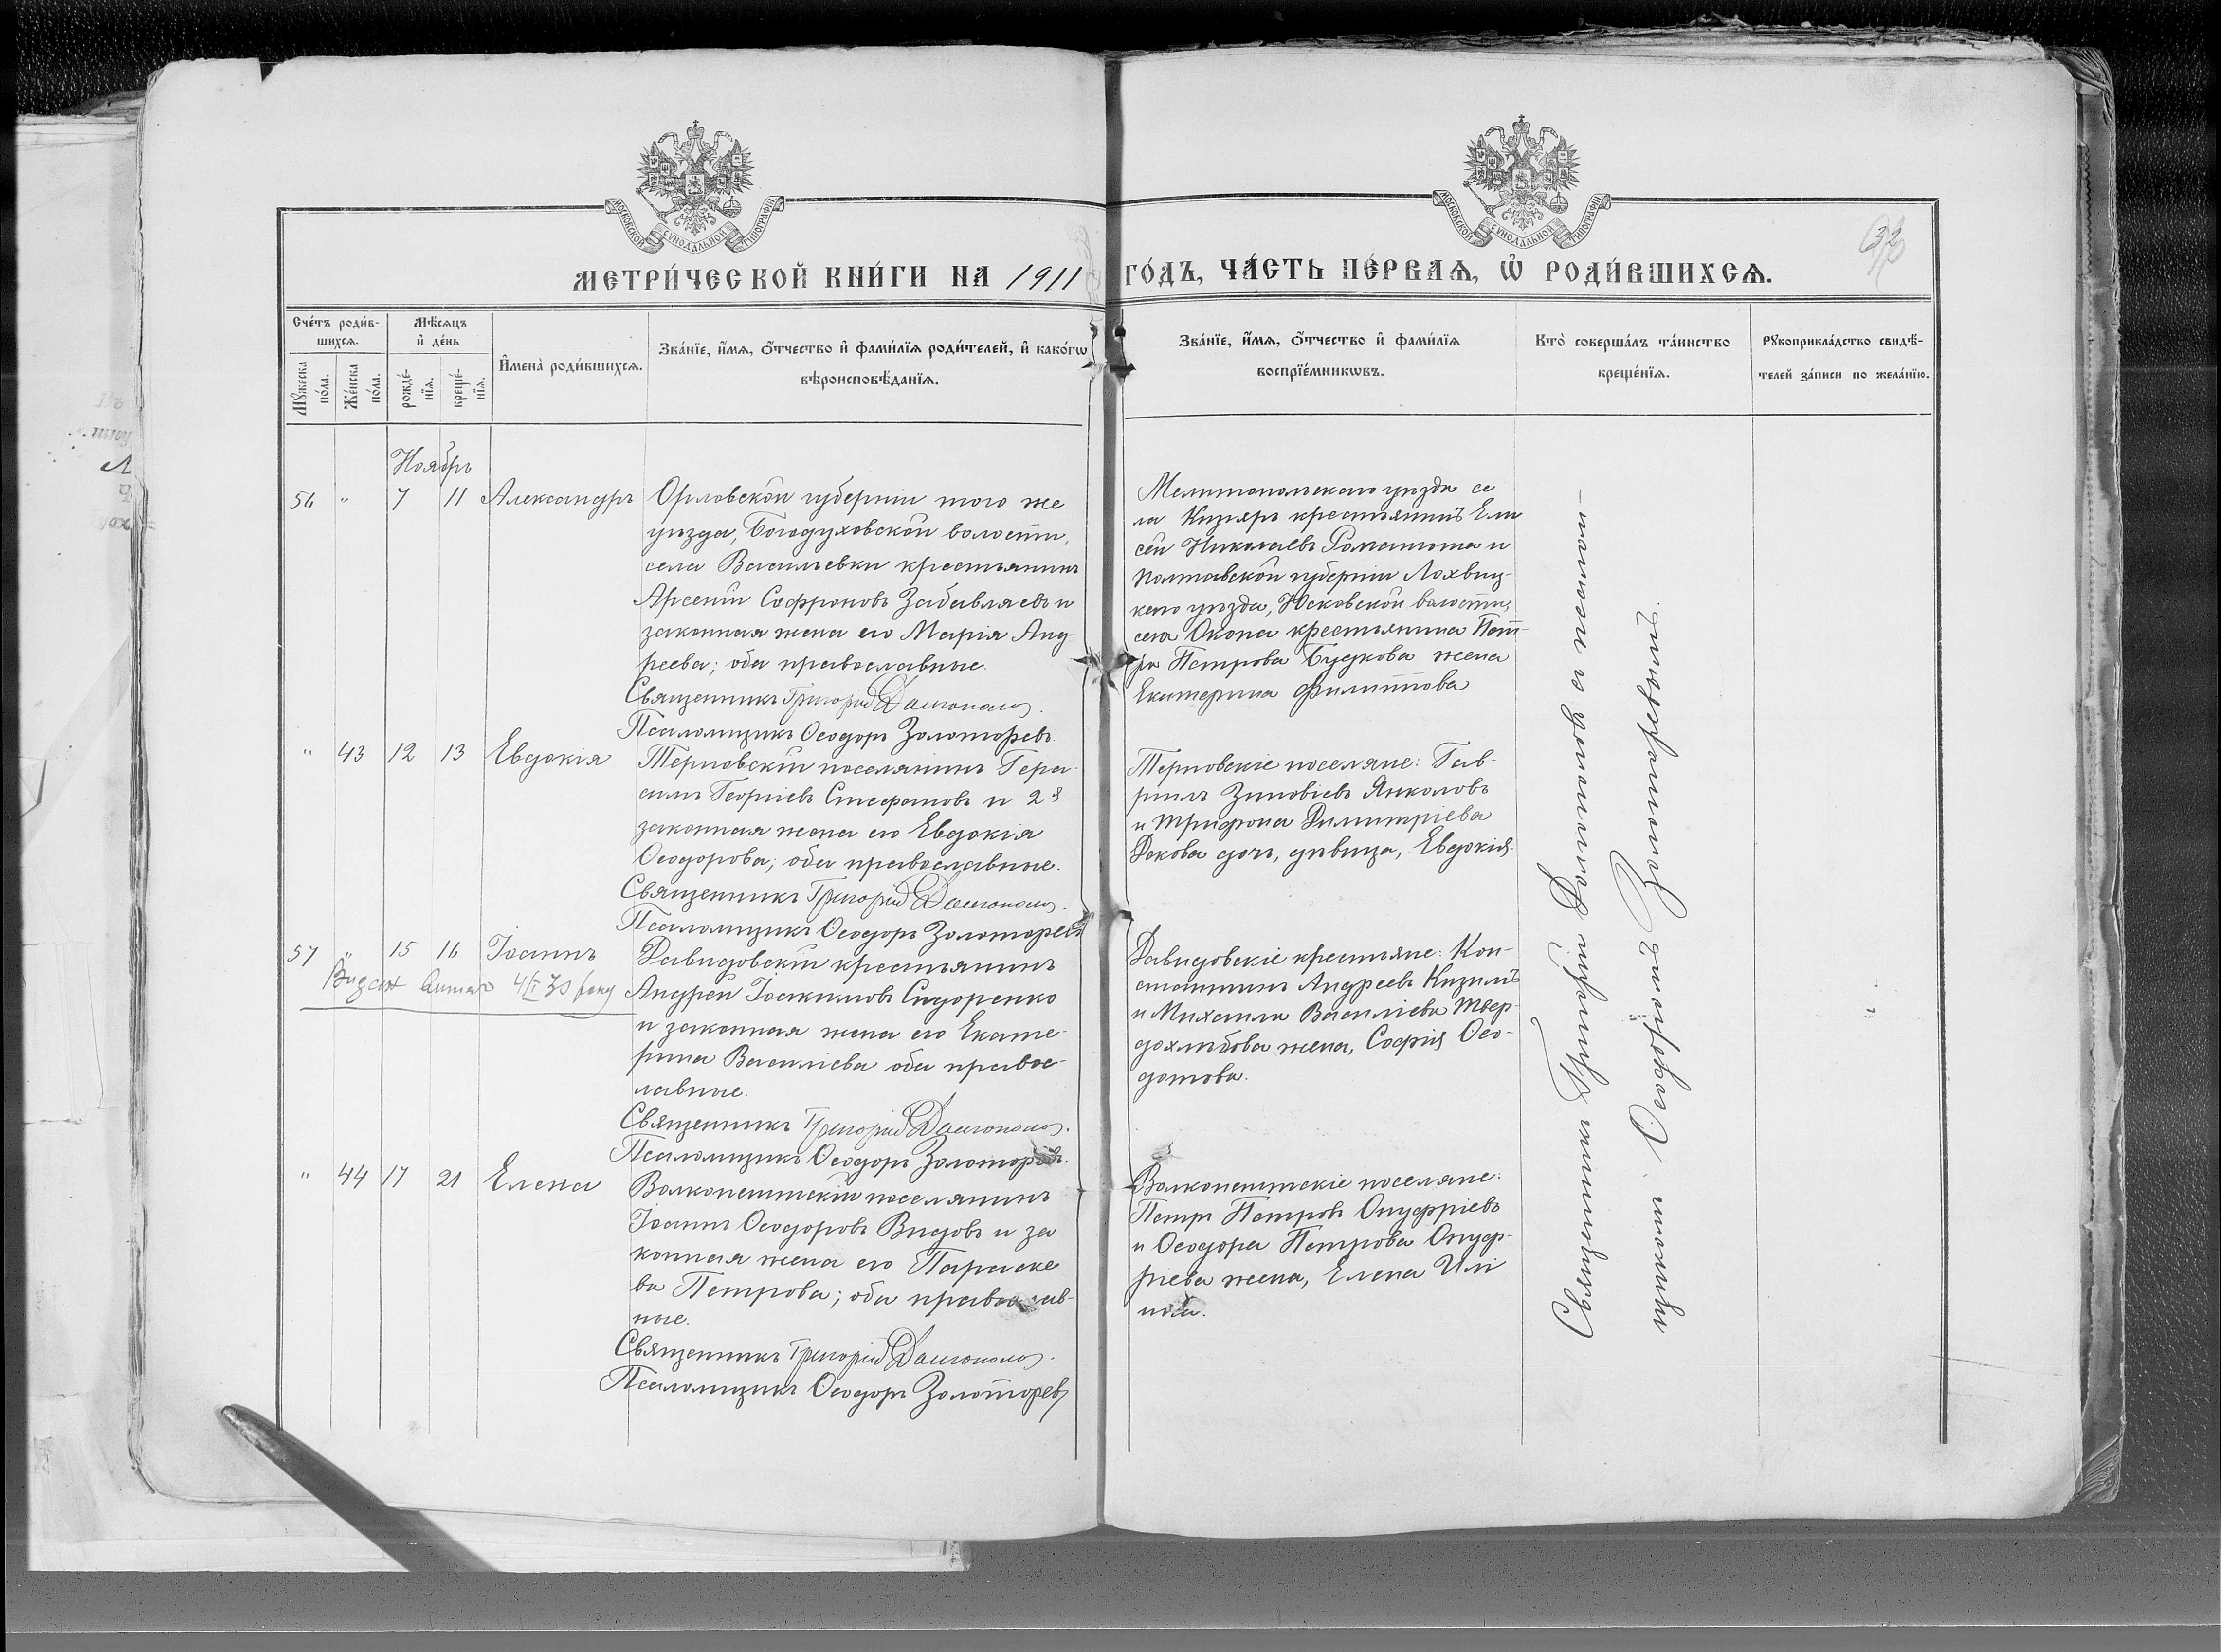 МОСКОВСКОЙ СѴНОДАЛЬНОЙ ТИПОГРАФІИ
МОСКОВСКОЙ СѴНОДАЛЬНОЙ ТИПОГРАФІИ
32
МЕТРИ́ЧЕСКОЙ КНИ́ГИ НА 1911 ГО́ДЪ, ЧА́СТЬ ПЕ́РВАѦ, Ѡ҆ РОДИ́ВШИХСѦ.
Сче́тъ роди́в-
шихсѧ.
Мꙋ́жеска по́ла.
Же́нска по́ла.
Мѣ́сѧцъ
и҆ де́нь
рожде́-
нїѧ.
креще́-
нїѧ.
И҆мена̀ роди́вшихсѧ.
Зва́нїе, и҆́мѧ, ѻ҆́тчество и҆ фами́лїѧ роди́телей, и҆ како́гѡ
вѣроисповѣ́данїѧ.
Зва́нїе, и҆́мѧ, ѻ҆́тчество и҆ фами́лїѧ
воспрїе́мникѡвъ.
Кто̀ соверша́лъ та́инство
креще́нїѧ.
Рꙋкоприкла́дство свидѣ́-
телей за́писи по жела́нїю.
Ноябрь
56 " 7 11 Александръ
Орловской губерніи того же
уѣзда, Богодуховской волости,
села Васильевки крестьянинъ
Арсеній Софроновъ Забавляевъ и
законная жена его Марія Анд-
реева; оба православные.
Священникъ Григорій
Псаломщикъ Ѳеодоръ Золоторевъ
Мелитопольскаго уѣзда се
ла Кизляръ крестьянинъ Ели
сей Николаевъ Романюта и
Полтавской губерніи Лохвиц-
каго уѣзда, Юсковской волости,
села Окопа крестьянина Пет-
ра Петрова Будкова жена
Екатерина Филиппова
" 43 12 13 Евдокія
Терновскій поселянинъ Гера-
симъ Георгіевъ Стефановъ и 2я
законная жена его Евдокія
Ѳеодорова; оба православные.
Священникъ Григорій
Псаломщикъ Ѳеодоръ Золоторевъ
Терновскіе поселяне: Гав-
рилъ Зиновіевъ Янколовъ
и Трифона Димитріева
Декова дочь, дѣвица, Евдокія.
57 " 15 16 Іоаннъ
4/I 30 року
Давидовскій крестьянинъ
Андрей Іоакимовъ Сидоренко
и законная жена его Екате-
рина Василіева оба правос-
лавные.
Священникъ Григорій
Псаломщикъ Ѳеодоръ Золоторевъ.
Давидовскіе крестьяне: Кон-
стантинъ Андреевъ Кизимъ
и Михаила Василіева Твер-
дохлѣбова жена, Софія Ѳео-
дотова.
" 44 17 21 Елена
Волконештскій поселянинъ
Іоаннъ Ѳеодоровъ Видовъ и за
конная жена его Параске
ва Петрова; оба православ-
ные.
Священникъ Григорій
Псаломщикъ Ѳеодоръ Золоторевъ
Волконештскіе поселяне:
Петръ Петровъ Онуфріевъ
и Ѳеодора Петрова Онуф-
ріева жена, Елена Илі
нова.
Священникъ Григорій с псалом-
щикомъ Ѳеодоромъ Золоторевымъ.